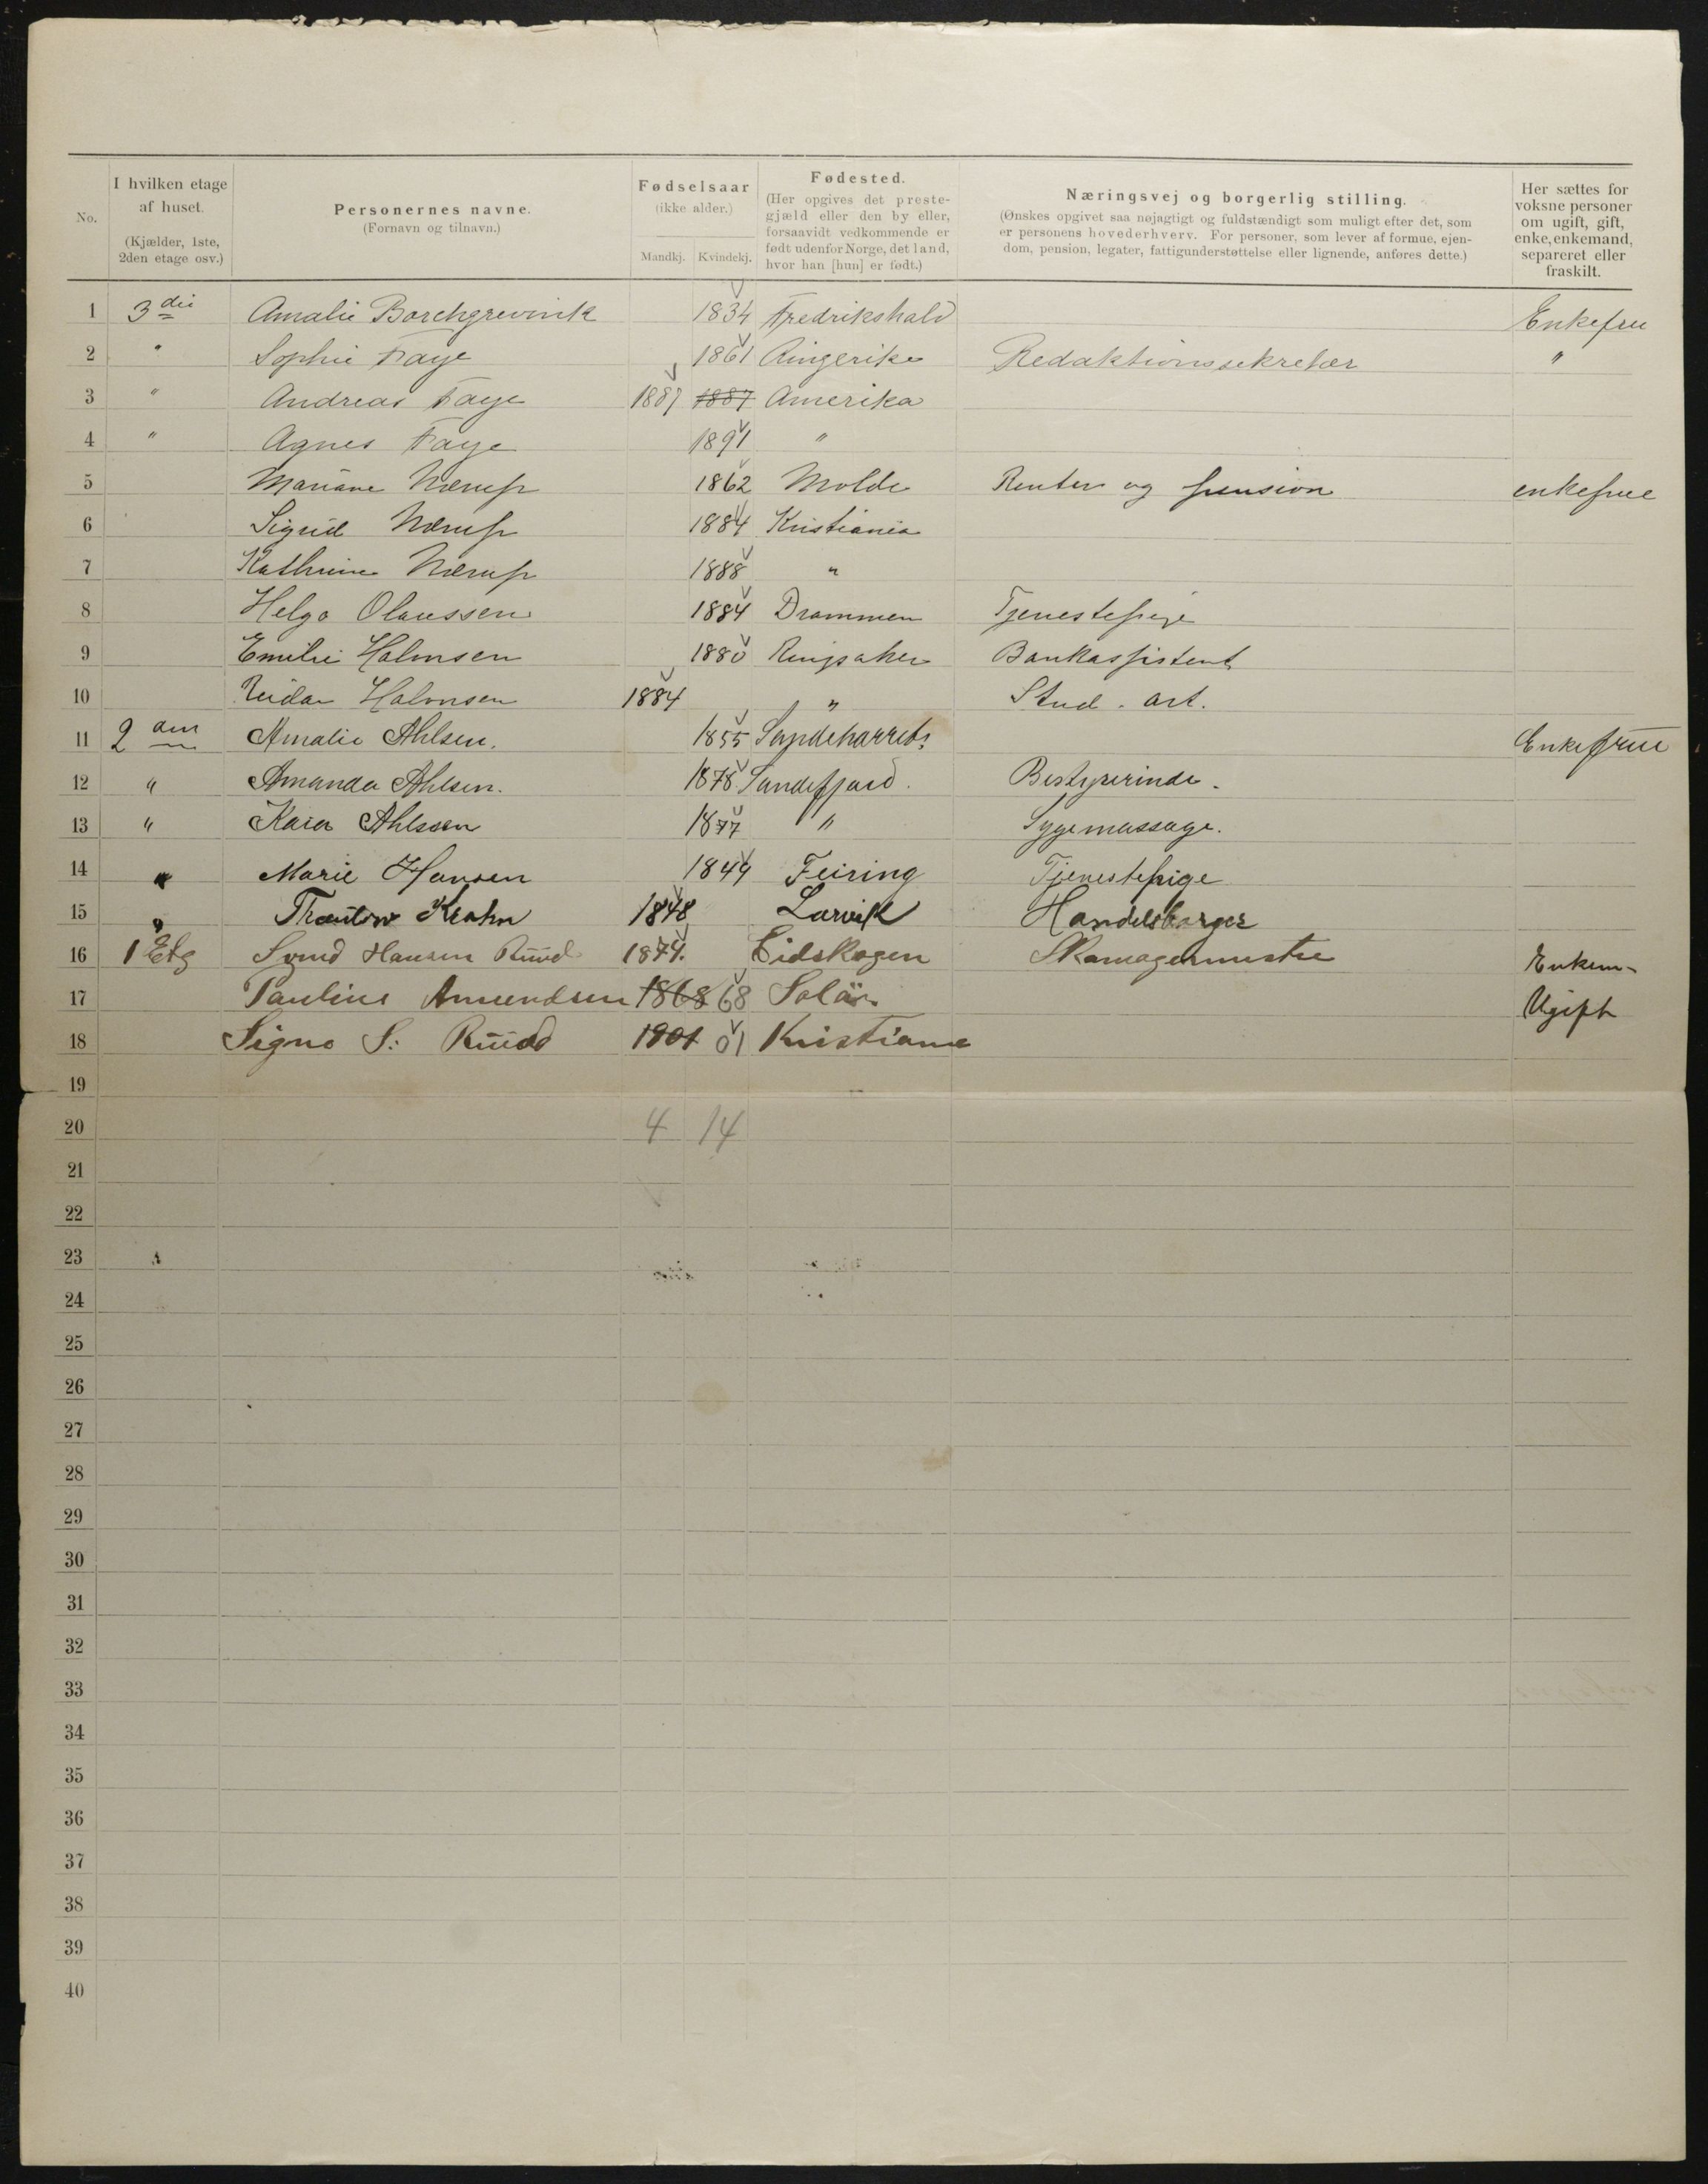 No.
I hvilken etage af huset. (Kjælder, 1ste, 2den etage osv.)
Personernes navne. (Fornavn og tilnavn.)
Fødselsaar (ikke alder.) Mandkj. Kvindekj.
Fødested. (Her opgives det prestegjæld eller den by eller, forsaavidt vedkommende er født udenfor Norge, det land, hvor han [hun] er født.)
Næringsvej og borgerlig stilling. (Ønskes opgivet saa nøjagtigt og fuldstændigt som muligt efter det, som er personens hovederhverv. For personer, som lever af formue, ejendom, pension, legater, fattigunderstøttelse eller lignende, anføres dette.)
Her sættes for voksne personer om ugift, gift, enke, enkemand, separeret eller fraskilt.
1 3die Amalie Borchgrevink 1834 Fredrikshald Enkefru
2 " Sophie Faye 1861 Ringerike Redaktionssekretær "
3 " Andreas Faye 1887 1887 Amerika
4 " Agnes Faye 1891 "
5 Mariane Nærup 1862 Molde Renter og pension enkefrue
6 Sigrid Nærup 1884 Kristiania
7 Kathrine Nærup 1888 "
8 Helga Olaussen 1884 Drammen Tjenestepige
9 Emilie Holmsen 1880 Ringsaker Bankassistent
10 Reidar Holmsen 1884 " Stud. art.
11 2den Amalie Ahlsen. 1855 Sandeharred Enkefrue
12 " Amanda Ahlsen. 1878 Sandefjord. Bestyrerinde.
13 " Kaia Ahlsen 1877 " Sygemassage.
14 " Marie Hansen 1849 Feiring Tjenestepige
15 " Krohn 1848 Larvik Handelsborger
16 1 Etg Svend Hansen Ruud 1874. Eidskogen Skomagermester Enkem-
17 Pauline Amundsen 1868 68 Solør Ugift
18 Signe S: Ruud 1901 01 Kristiania
19
20 4 14
21
22
23
24
25
26
27
28
29
30
31
32
33
34
35
36
37
38
39
40